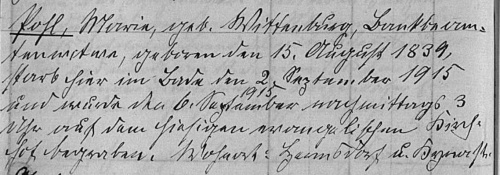 Pohl, Marie, geb. Wittenburg, Bankbeam-
tenwitwe, geboren den 15. August 1839,
starb hier im Bade den 2. September 1915
1915
und wurde den 6. September nachmittags 3
Uhr auf dem hiesigen evangelischen Kirch-
hof begraben. Wohnort: Hermsdorf u. Kynast.